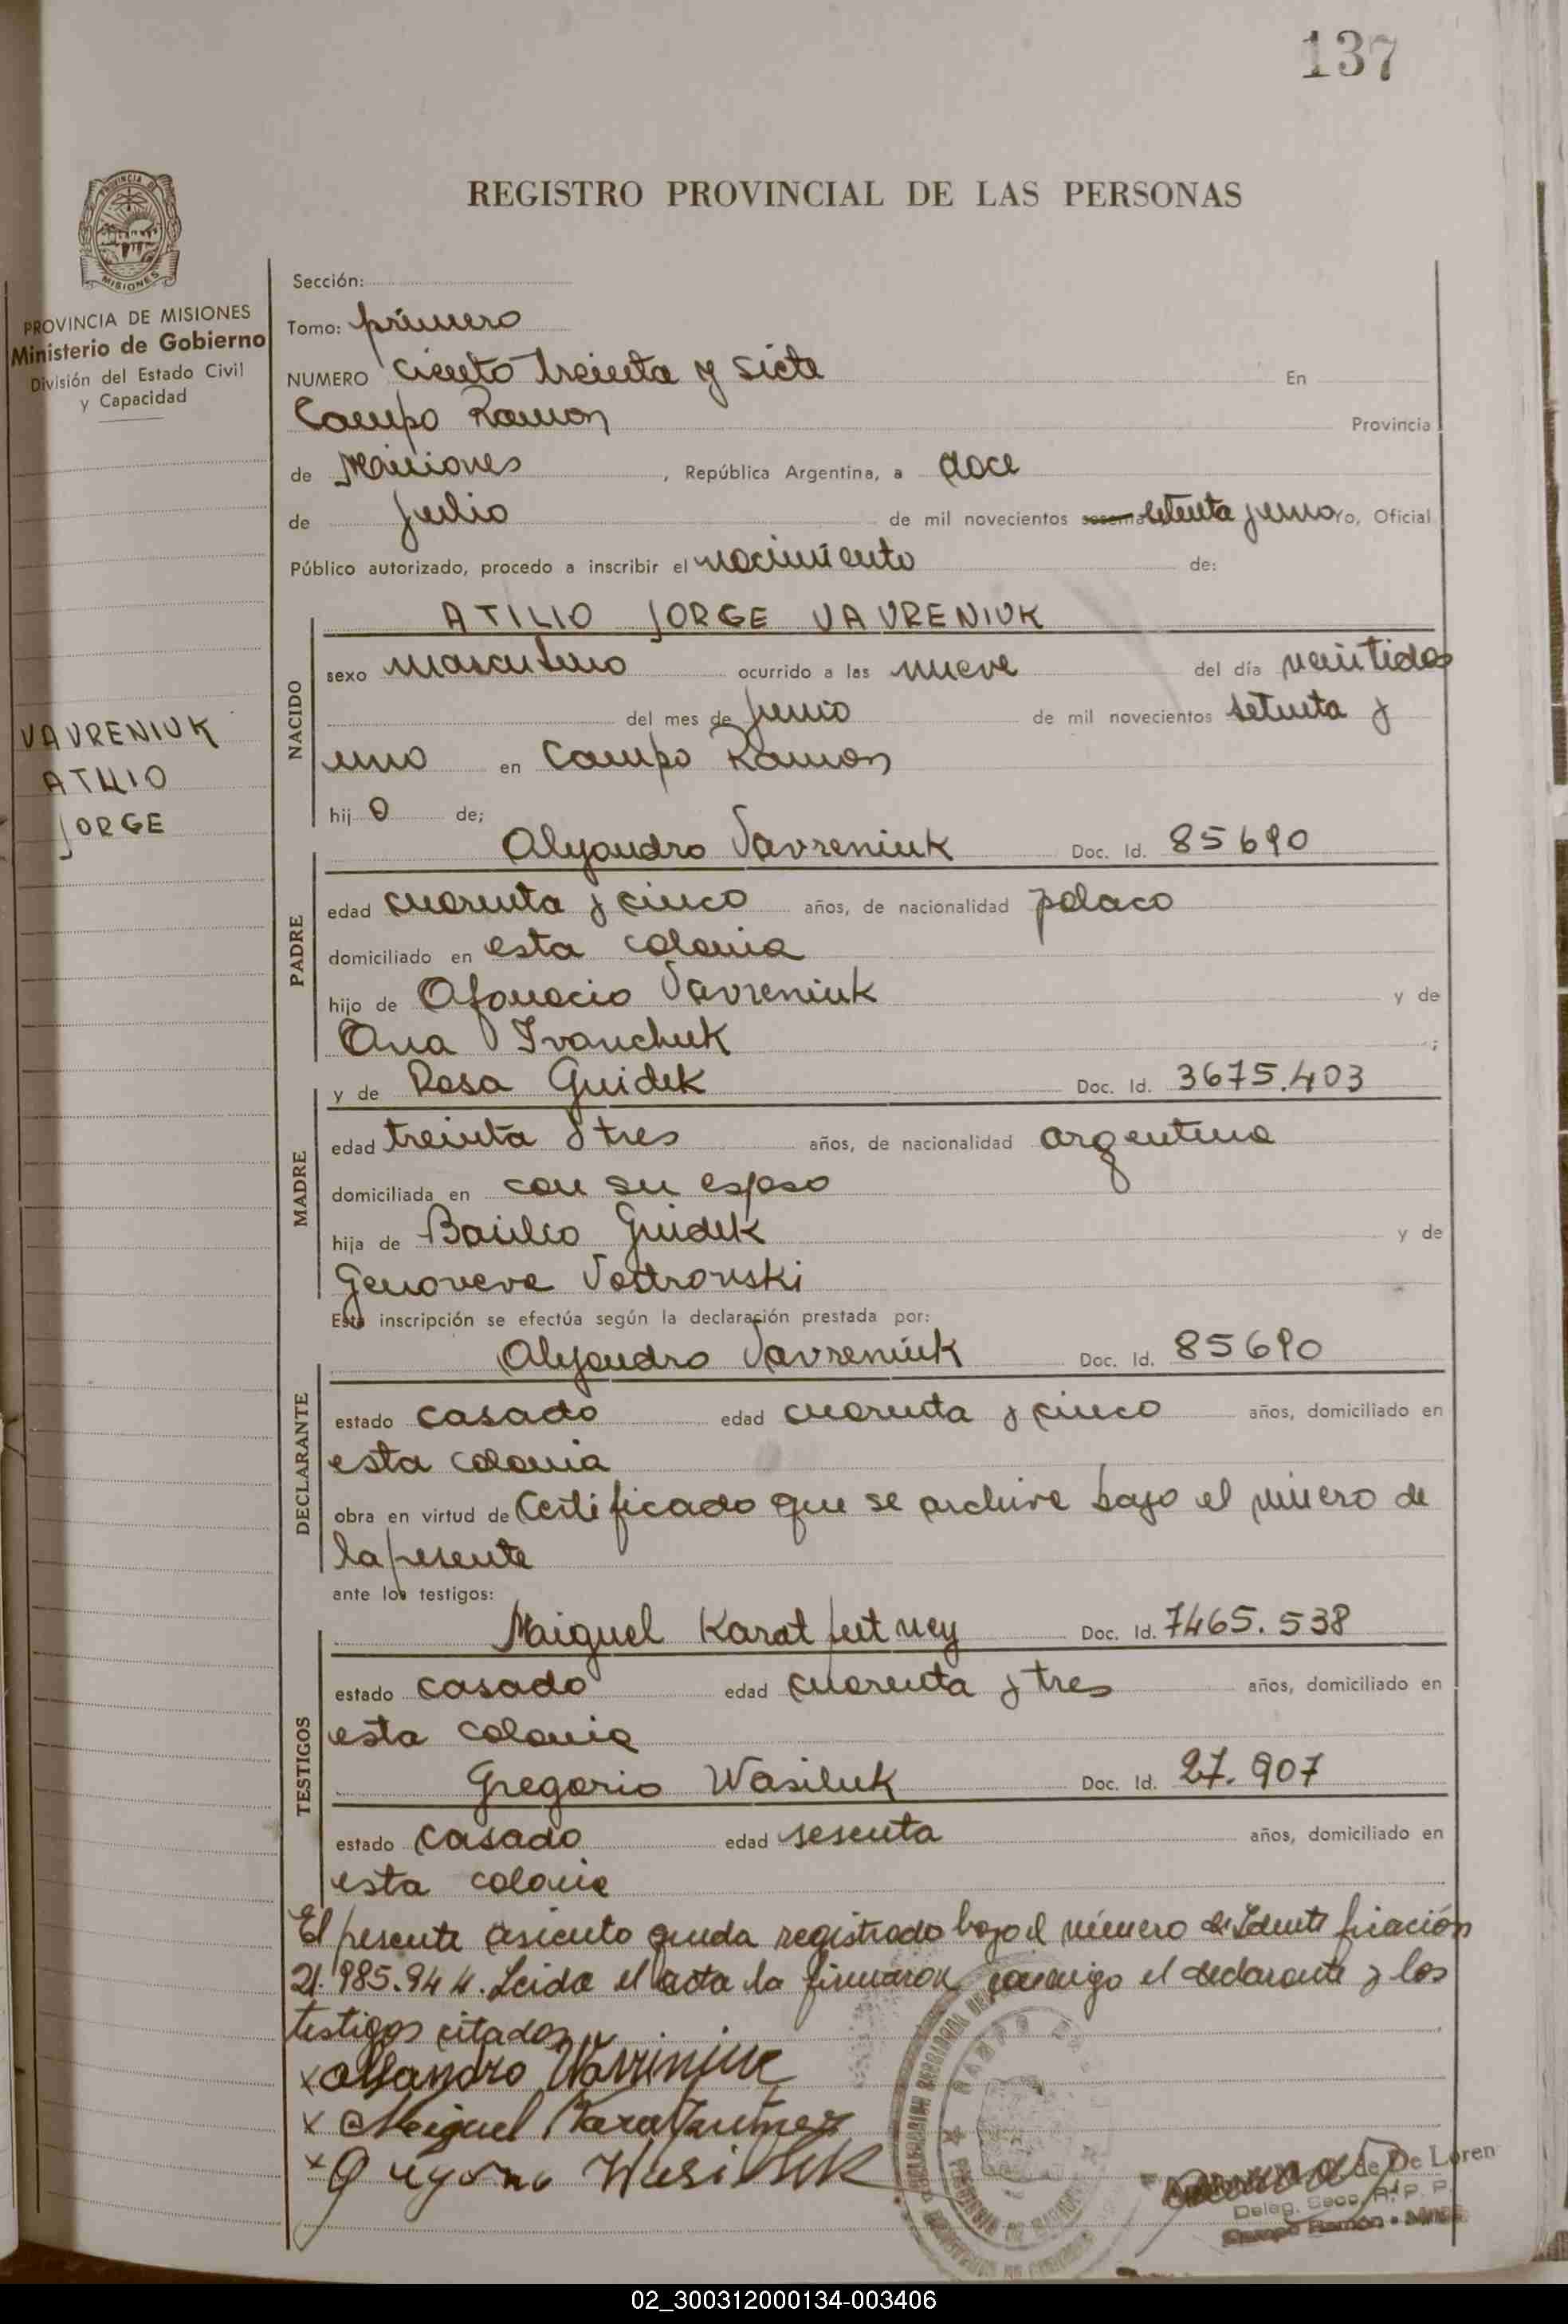 137
REGISTRO PROVINCIAL DE LAS PERSONAS
PROVINCIA DE MISIONES
Ministerio de Gobierno
División del Estado Civil
y Capacidad
VAVRENIUK
ATILIO
JORGE
Sección:
Tomo: primero
NUMERO Ciento treinta y siete En
Campo Ramon Provincia
de Misiones, República Argentina, a doce
de Julio de mil novecientos setenta y uno Yo, Oficial
Público autorizado, procedo a inscribir el nacimiento de:
ATILIO JORGE VAVRENIUK
NACIDO
sexo masculino ocurrido a las nueve del día veintidos
del mes de Junio de mil novecientos setenta y
uno en Campo Ramon
hijo de;
Alejandro Vavreniuk Doc. Id. 85690
PADRE
edad cuarenta y cinco años, de nacionalidad polaco
domiciliado en esta colonia
hijo de Afanacio Vavreniuk y de
Ana Ivanchuk ;
y de Rosa Guidek Doc. Id. 3675.403
MADRE
edad treinta y tres años, de nacionalidad argentina
domiciliada en con su esposo
hija de Basilio Guidek y de
Genoveva
Esta inscripción se efectúa según la declaración prestada por:
Alejandro Vavreniuk Doc. Id. 85690
DECLARANTE
estado casado edad cuarenta y cinco años, domiciliado en
esta colonia
obra en virtud de Certificado que se archive bajo el número de
la presente
ante los testigos:
Maiguel Doc. Id. 7465.538
TESTIGOS
estado casado edad cuarenta y tres años, domiciliado en
esta colonia
Gregorio Wasiluk Doc. Id. 27.907
estado casado edad sesenta años, domiciliado en
esta colonia
El presente asiento queda registrado bajo el número de Identificación
21.985.944. Leida el acta la firmaron conmigo el declarante y los
testigos citados
x
x Meiguel
x Wasiluk
de De Loren
Deleg. Secc. R. P. P.
Campo Ramón - Mnes
02_300312000134-003406